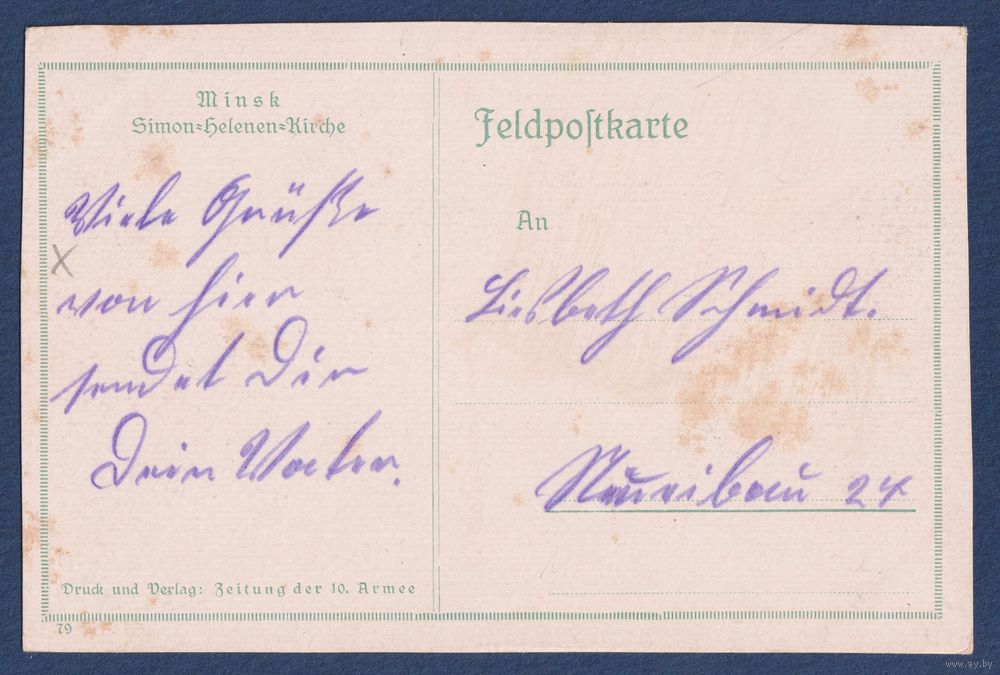 Minsk
Simon-Helenen-Kirche
Viele Grüße
von hier
sendet Dir
Dein Vater.
Druck und Verlag: Zeitung der 10. Armee
79
Feldpostkarte
An
Liesbeth Schmidt.
24
www.ay.by